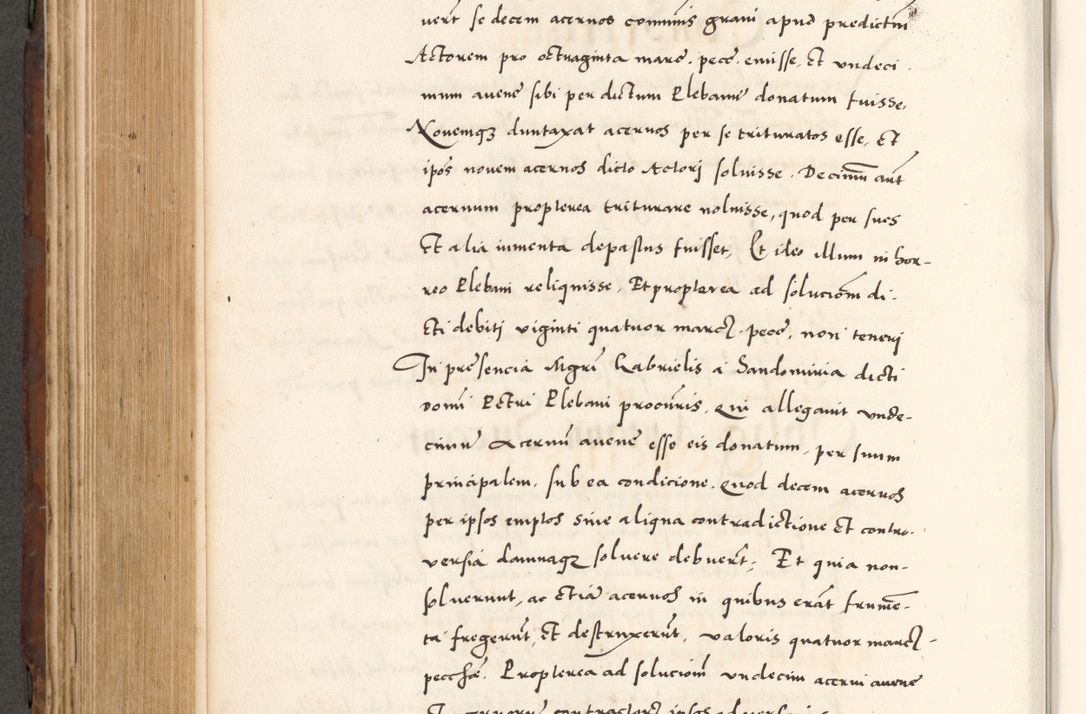 verūt se decem acervos cōmunis grani apud predictū
Actorem pro octuaginta marc. pecc. emisse, Et undeci-
mum avenę sibi per dictum Plebanū donatum fuisse,
Novemqꝫ duntaxat acervos per se trituratos esse, Et
ipōs novem acervos dicto Actori solvisse. Decimū aūt
acervum propterea triturare noluisse, quod per sues
Et alia iumenta depastus fuisset, Et ideo illum in hor-
reo Plebani reliquisse. Et propterea ad solucionē di-
cti debiti viginti quatuor marcꝫ. pecc. non teneri
In presencia Mgrī Gabrielis a Sandomiria dicti
Domī Petri Plebani procūris, Qui allegavit unde-
cimū Acervū avenę esse eis donatum, per suum
principalem, sub ea condicione, Quod decem acervos
per ipsos emptos sine aliqua contradictione Et contro-
versia damnaqꝫ solvere debuerūt, Et quia non-
solverunt, ac etiā acervos in quibus erāt frumē-
ta fregerūt, Et destruxerūt, valoris quatuor marcꝫ
pecchę. Propterea ad solucionē undecim acervi avenę